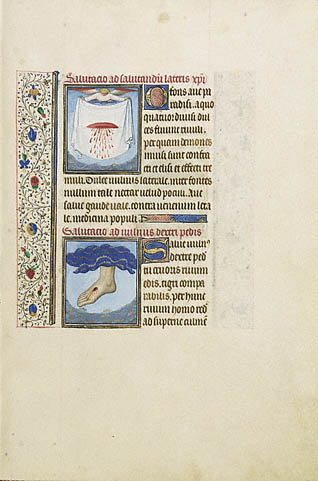 Salutacio ad salutandū lateris xp̄i
O fons aue pa
radisi. a quo
quatuor diuisi dul
ces fuunt riuuli.
per quam demones
musi sunt confra
cti et elisi et effecti tre
muli. Dulce uulnus laterale. inter fontes
nullum tale nectar uel ad pocula. Aue
salue gaude uale. contra uenenum leta
le. medicina populi.
Salutacio ad uulnus dextri pedis
Salue uuln9
dextre ped
cruoris riuum
edis. tigri compa
rabilis. per hunc
riuum homo red
ad superne